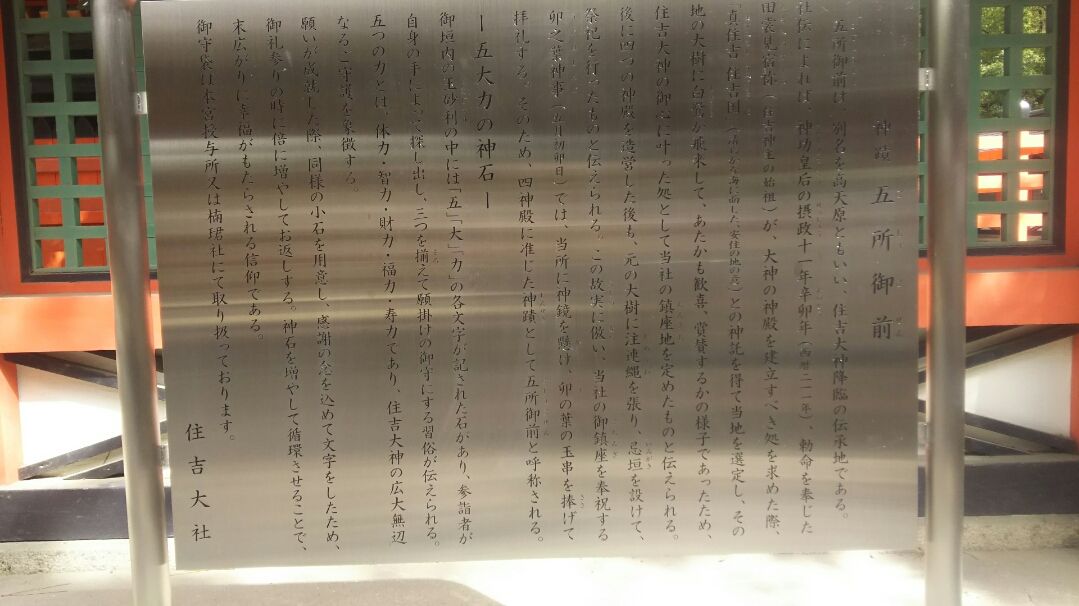 神蹟 五所御前
五所御前は、別名を高天原ともいい、住吉大神降臨の伝承地である。
社伝によれば、神功皇后の摂政十一年辛卯年（西暦二一一年）、勅命を奉じた
田裳見宿祢（住吉神主の始祖）が、大神の神殿を建立すべき処を求めた際、
「真住吉 住吉国（清らかな海に面した安住の地の意）」との神託を得て当地を選定し、その
地の大樹に白鷺が飛来して、あたかも歓喜、賞賛するかの様子であったため、
住吉大神の御心に叶った処として当社の鎮座地を定めたものと伝えられる。
後に四つの神殿を造営した後も、元の大樹に注連縄を張り、忌垣を設けて、
祭祀を行ったものと伝えられる。この故実に倣い、当社の御鎮座を奉祝する
卯之葉神事（五月初卯日）では、当所に神鏡を懸け、卯の葉の玉串を捧げて
拝礼する。そのため、四神殿に准じた神蹟として五所御前と呼称される。
―五大力の神石―
御垣内の玉砂利の中には「五」「大」「力」の各文字が記された石があり、参詣者が
自身の手によって探し出し、三つを揃えて願掛けの御守にする習俗が伝えられる。
五つの力とは、体力・智力・財力・福力・寿力であり、住吉大神の広大無辺
なるご守護を象徴する。
願いが成就した際、同様の小石を用意し、感謝の念を込めて文字をしたため、
御礼参りの時に倍に増やしてお返しする。神石を増やして循環させることで、
末広がりに幸福がもたらされる信仰である。
御守袋は本宮授与所又は楠珺社にて取り扱っております。
住吉大社